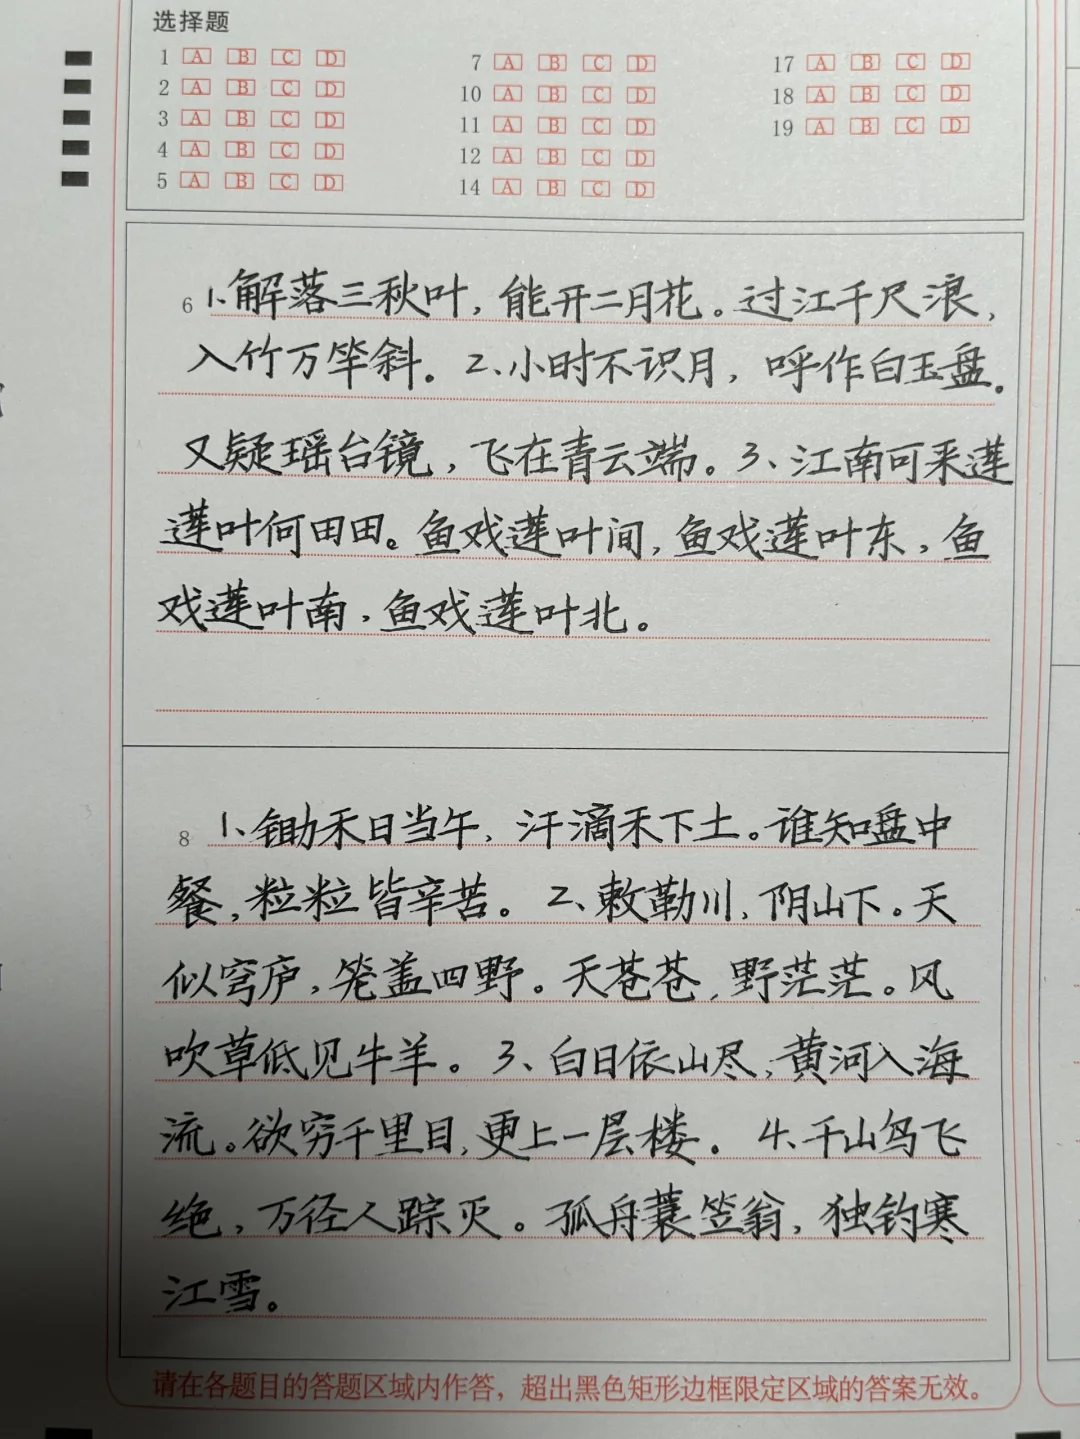 选择题
1 A B C D 7 A B C D 17 A B C D
2 A B C D 10 A B C D 18 A B C D
3 A B C D 11 A B C D 19 A B C D
4 A B C D 12 A B C D
5 A B C D 14 A B C D
6 1、解落三秋叶，能开二月花。过江千尺浪，
入竹万竿斜。2、小时不识月，呼作白玉盘。
又疑瑶台镜，飞在青云端。3、江南可采莲
莲叶何田田。鱼戏莲叶间，鱼戏莲叶东，鱼
戏莲叶南，鱼戏莲叶北。
8 1、锄禾日当午，汗滴禾下土。谁知盘中
餐，粒粒皆辛苦。2、敕勒川，阴山下。天
似穹庐，笼盖四野。天苍苍，野茫茫。风
吹草低见牛羊。3、白日依山尽，黄河入海
流。欲穷千里目，更上一层楼。4、千山鸟飞
绝，万径人踪灭。孤舟蓑笠翁，独钓寒
江雪。
请在各题目的答题区域内作答，超出黑色矩形边框限定区域的答案无效。